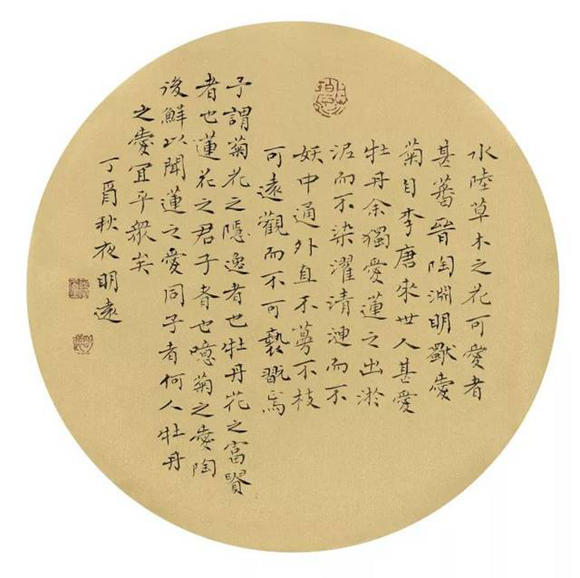 水陸草木之花可愛者
甚蕃晉陶淵明獨愛
菊自李唐來世人甚愛
牡丹余獨愛蓮之出淤
泥而不染濯清漣而不
妖中通外直不蔓不枝
可遠觀而不可褻翫焉
予謂菊花之隱逸者也牡丹花之富貴
者也蓮花之君子者也噫菊之愛陶
後鮮以聞蓮之愛同予者何人牡丹
之愛宜乎眾矣
丁酉秋夜明遠